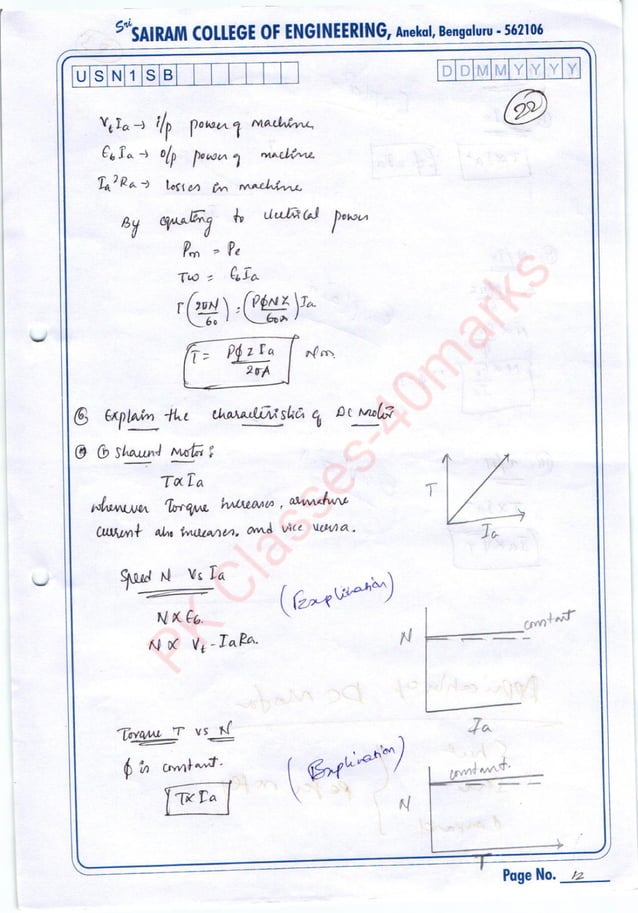 Sri SAIRAM COLLEGE OF ENGINEERING, Anekal, Bengaluru - 562106
U S N 1 S B
D D M M Y Y Y Y
22
VtIa → i/p power of machine
EbIa → o/p power of machine
Ia²Ra → losses in machine
By equating to electrical power
Pm = Pe
Tω = EbIa
T(2πN/60) = (PφNZ/60A)Ia
T = PφZIa/2πA Nm.
⑥ Explain the characteristics of DC Motor
① Shaunt Motor:
T∝Ia
T
Ia
whenever Torque increases, armature
current also increases. and vice versa.
Speed N Vs Ia
(Explination)
N∝Eb.
N∝ Vt-IaRa.
N
constant
Ia
Torque T vs N
φ is constant.
(Explination)
T∝Ia
N
constant.
T
PK Classes-40marks
Page No. 12